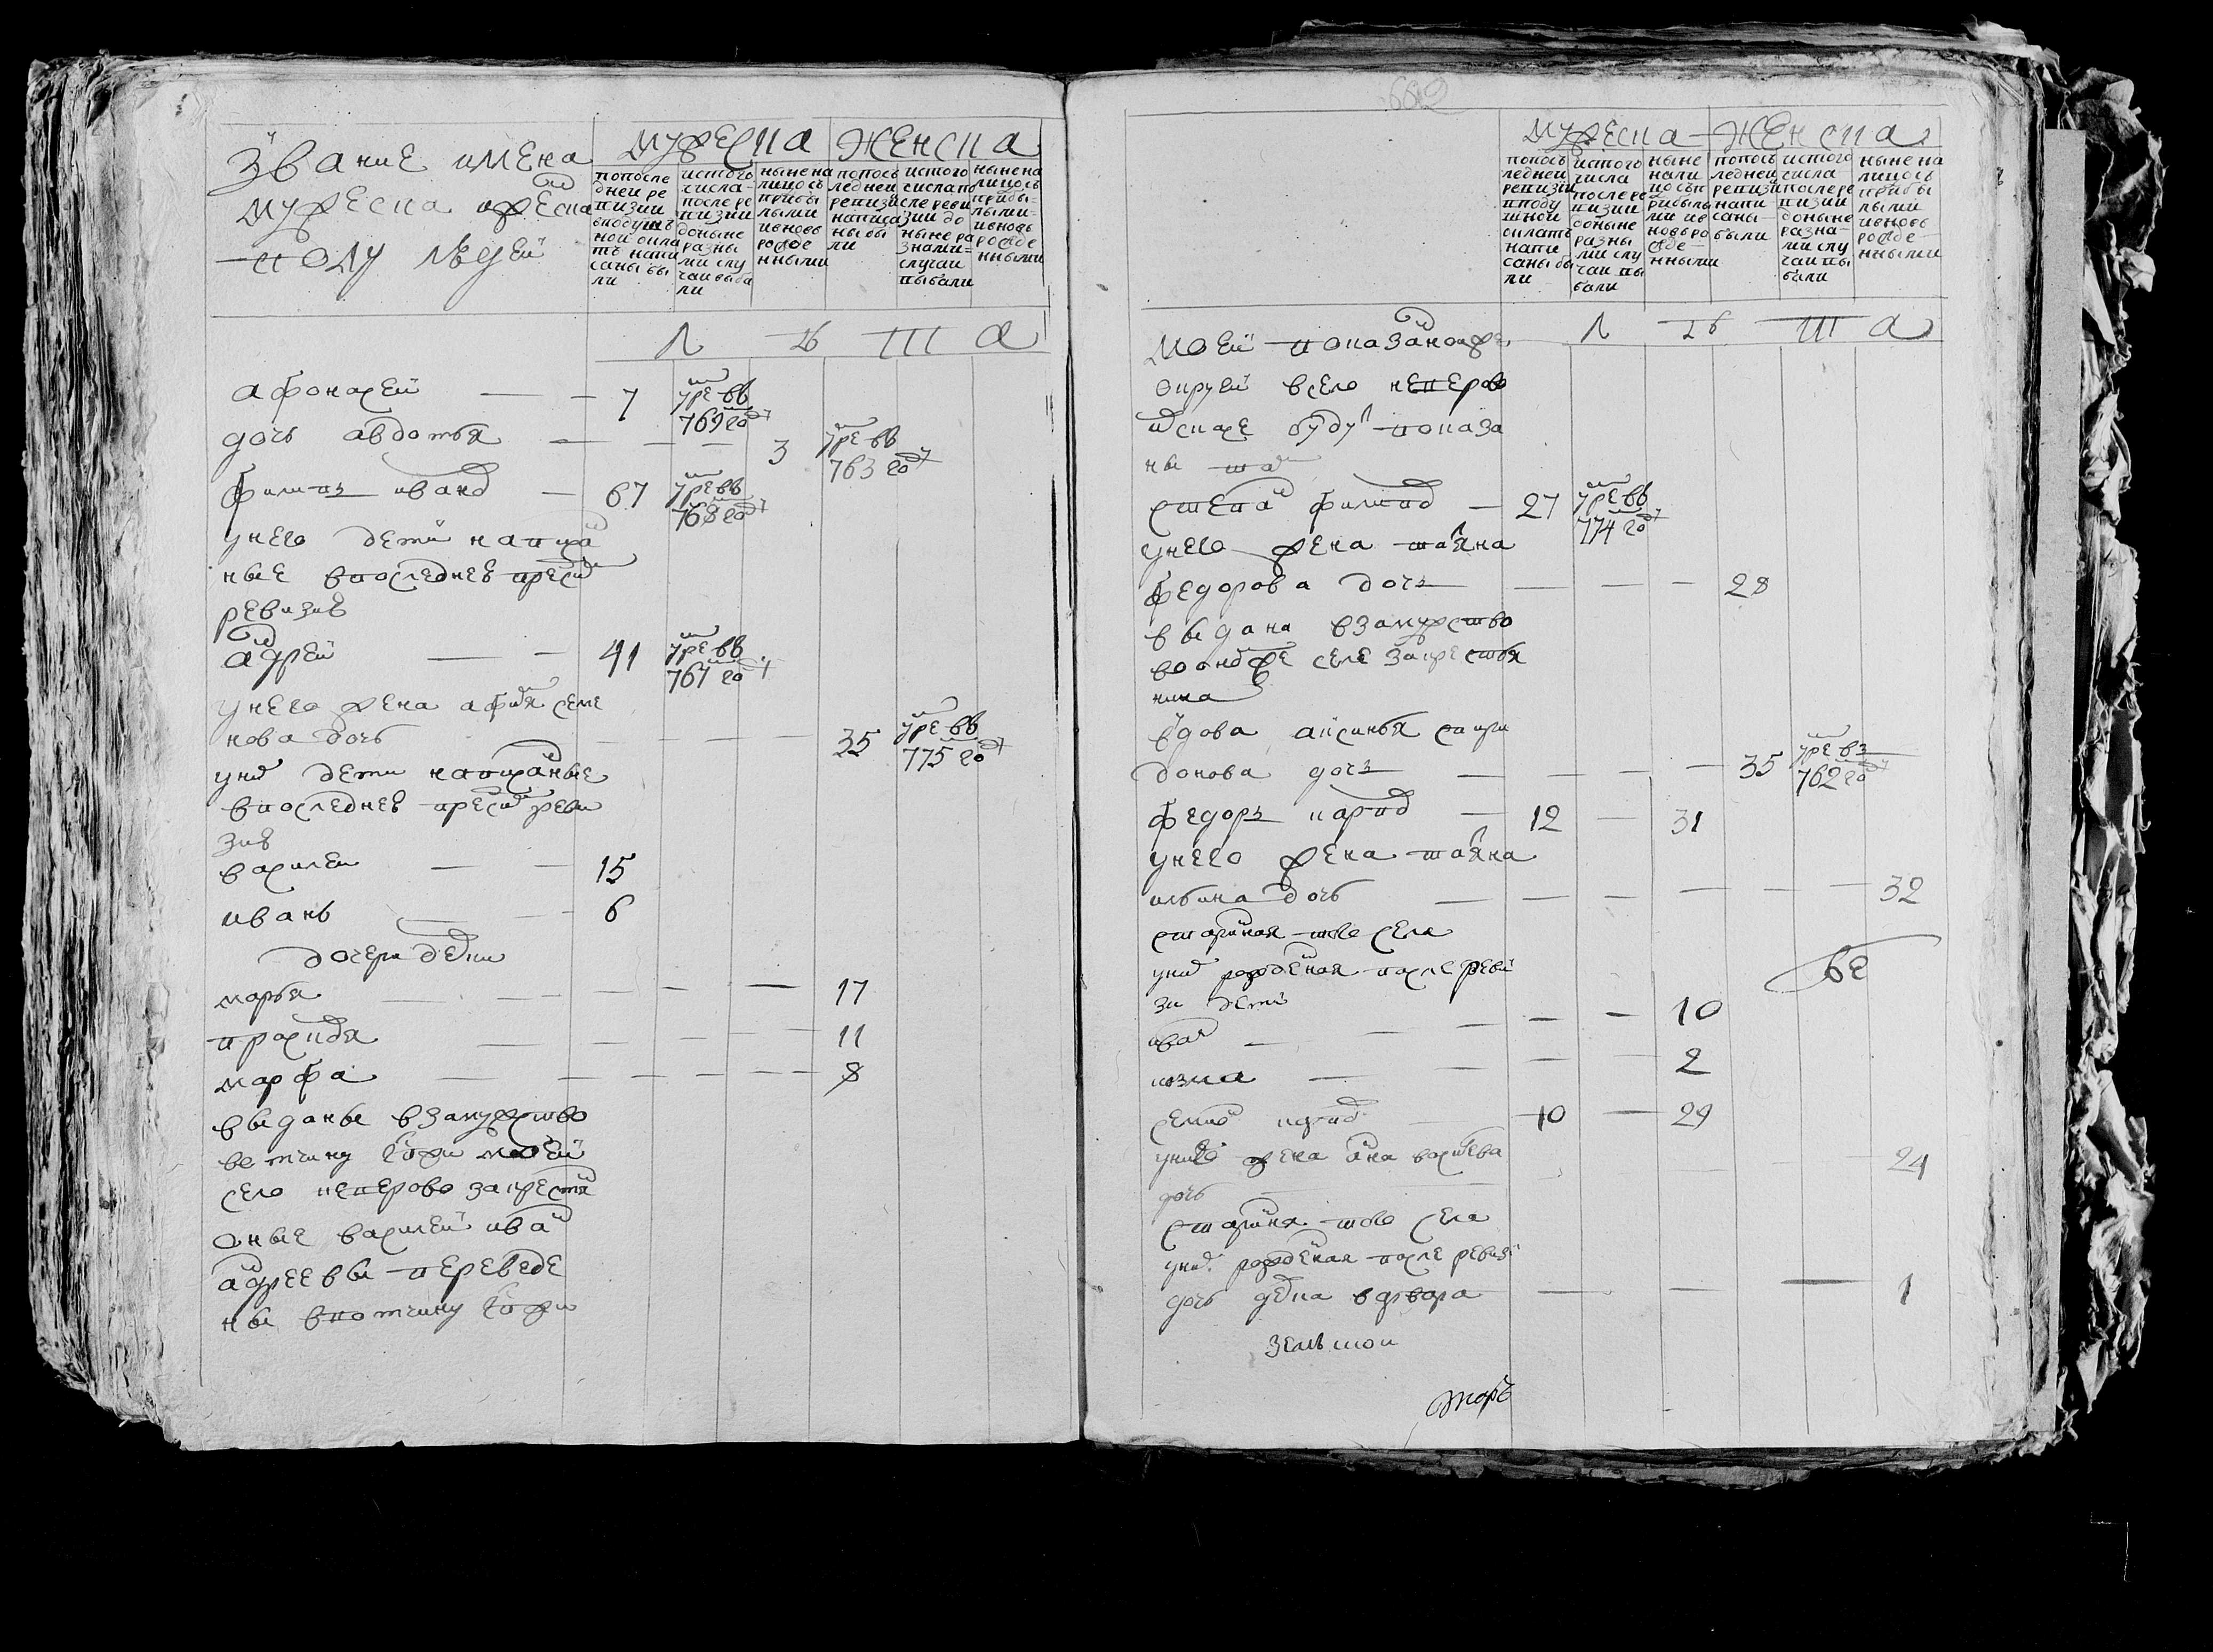 звание имена
мужеска и женска
полу людей
мужеска женска
попосле
дней ре
визии
вподуш
ной окла
тъ напи
саны бы
ли
ис того
числа
после ре
визии
доныне
разны
ми слу
чаи выба
ли
ныне на
лицо съ
прибы
лыми
и вновь
рожде
нными
по пось
ледней
ревизи
написа
ны бы
ли
ис того
числа по
сле реви
зии до
ныне ра
зными
случаи
выбали
ныне на
лицо съ
прибы
лыми
и вновь
рожде
нными
л ѣ т а
афонасей 7 умре въ 769 го
дочь авдотья 3 умре въ 763 го
филипъ иванов 67 умре въ 768 го
у него дети написа
ные в последнею пред сим
ревизию
андрей 41 умре въ 767 го
у него жена афимя семе
нова дочь 35 умре въ 775 го
у них дети написаные
в последнею пред сим реви
зию
василеи 15
иванъ 6
дочери девки
марья 17
прасковя 11
марфа 8
выданы взамужство
вотчину гжи моей
село кеперово за крестя
оные василей иван
андреевы переведе
ны в вотчину гжи
662
мужеска женска
по пось
ледней
ревизии
вподу
шной
окладъ
напи
саны бы
ли
ис того
числа
после ре
визии
доныне
разны
ми слу
чаи вы
бали
ныне
нали
цо съ п
рибылы
ми и в
новь ро
жде
нными
по пось
ледней
ревизи
напи
саны
были
ис того
числа
после ре
визии
доныне
разны
ми слу
чаи вы
бали
ныне на
лицо съ
прибы
лыми
и вновь
рожде
нными
л ѣ т а
моей показаного же
округи в село кеперово
и в скаске будут показа
ны там
степан филипов 27 умре въ 774 го
у него жена татяна
федорова дочь 28
выдана взамужство
во оном же селе за крестья
нина
вдова аксинья спири
донова дочь 35 умре въ 762 го
федоръ карпов 12 31
у него жена татяна
ильина дочь 32
старинная того села
у них рожденая после реви
зи дети
иван 10
козма 2
семион карпов 10 29
у него жена анна василева
дочь 24
старинная того села
у них рожденая после ревизи
дочь девка варвара 1